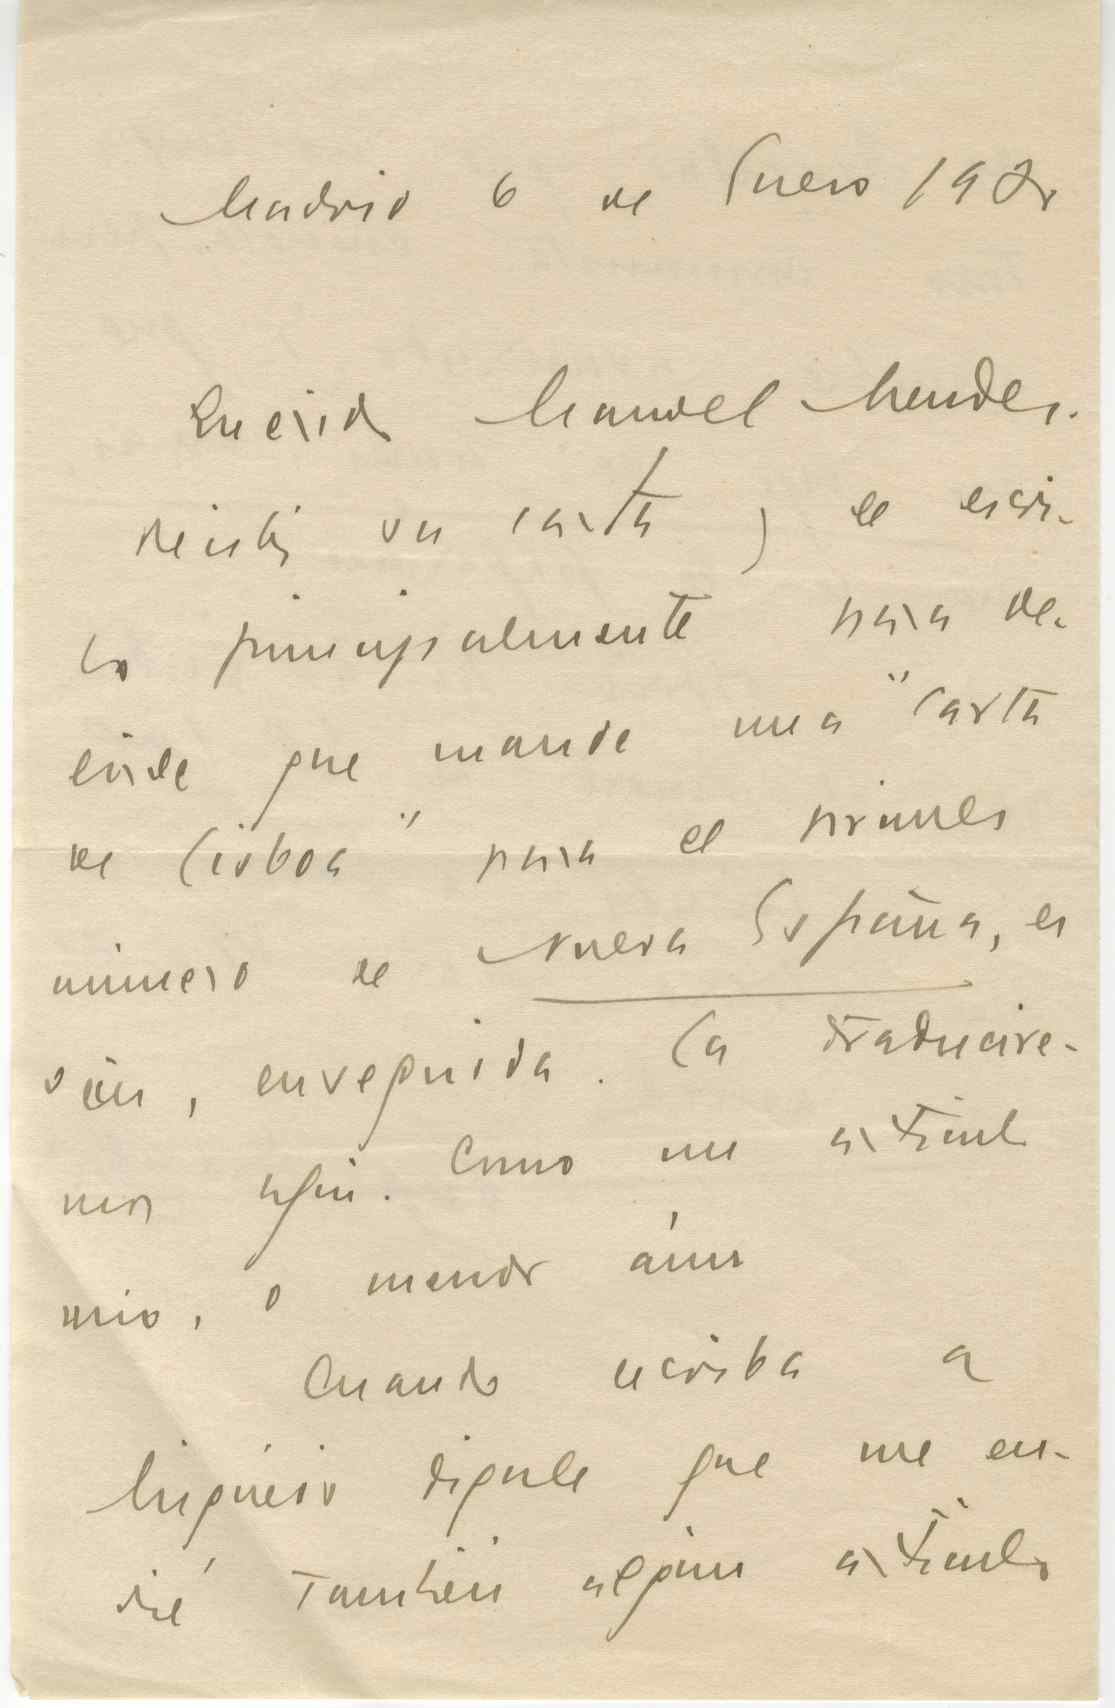 Madrid 6 de Enero 19
Querido Manuel Mendes.
Recibí su carta y le escri-
bo principalmente para de-
cirle que mande una "Carta
de Lisboa" para el primer
número de Nueva España, en
enseguida. La traducire-
mos aquí. Como un articulo
mio, o menor
Cuando escriba a
Miguéis digale que me en-
vié también algún articulo